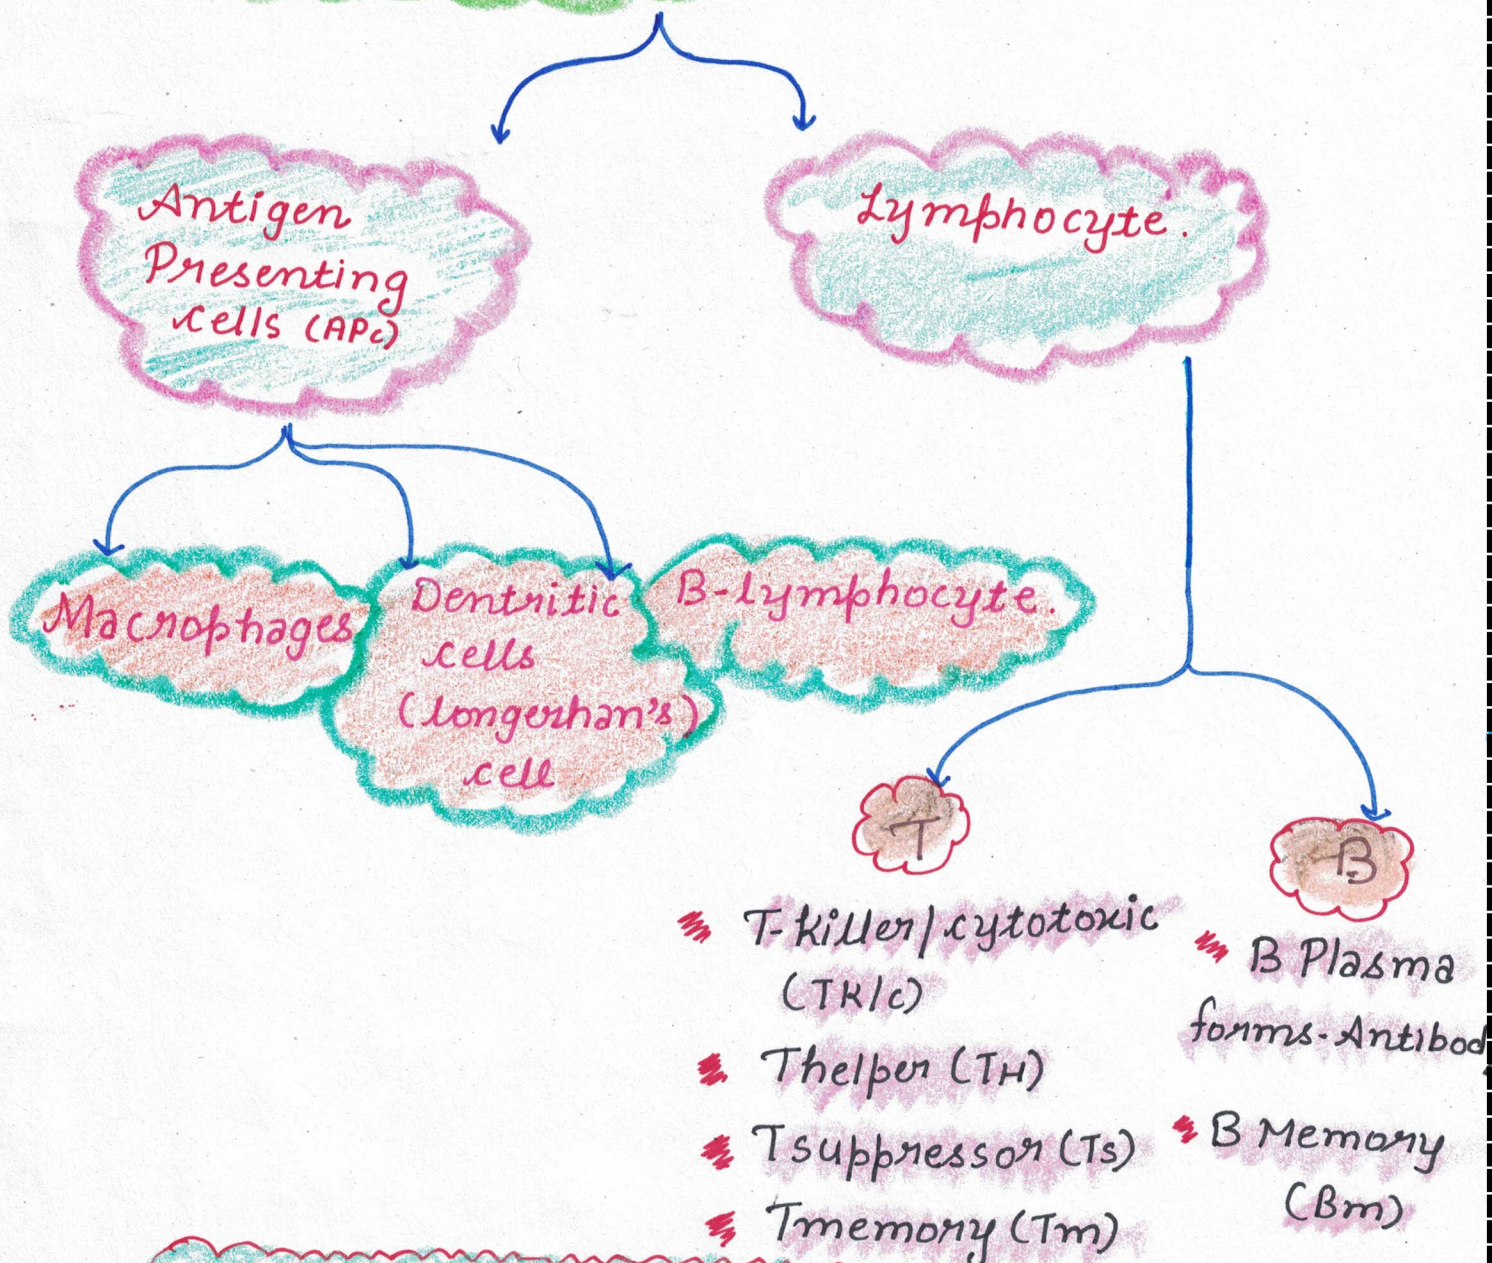 Antigen
Presenting
cells (APc)
Lymphocyte.
Macrophages
Dentritic
cells
(longerhan's)
cell
B-lymphocyte.
T
T-killer/cytotoxic
(TK/c)
Thelper (TH)
Tsuppressor (Ts)
Tmemory (Tm)
B
B Plasma
forms-Antibod
B Memory
(Bm)